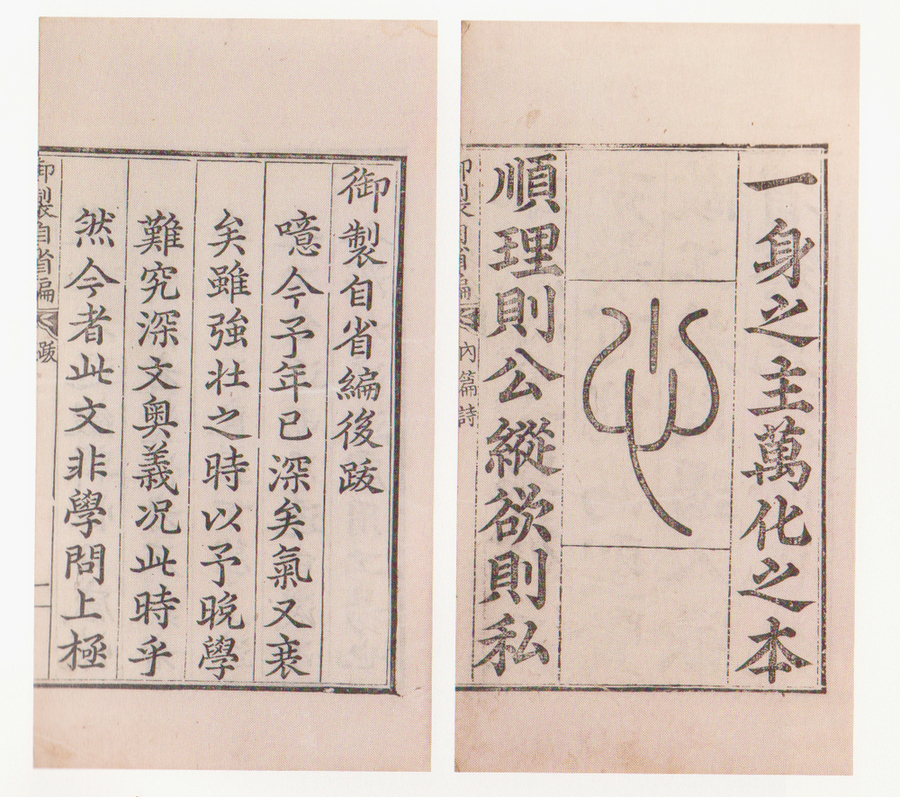 一身之主萬化之本
心
順理則公縱欲則私
御製自省編 內篇詩
御製自省編後跋
噫今予年已深矣氣又衰
矣雖強壯之時以予晚學
難究深文奧義况此時乎
然今者此文非學問上極
御製自省編 跋